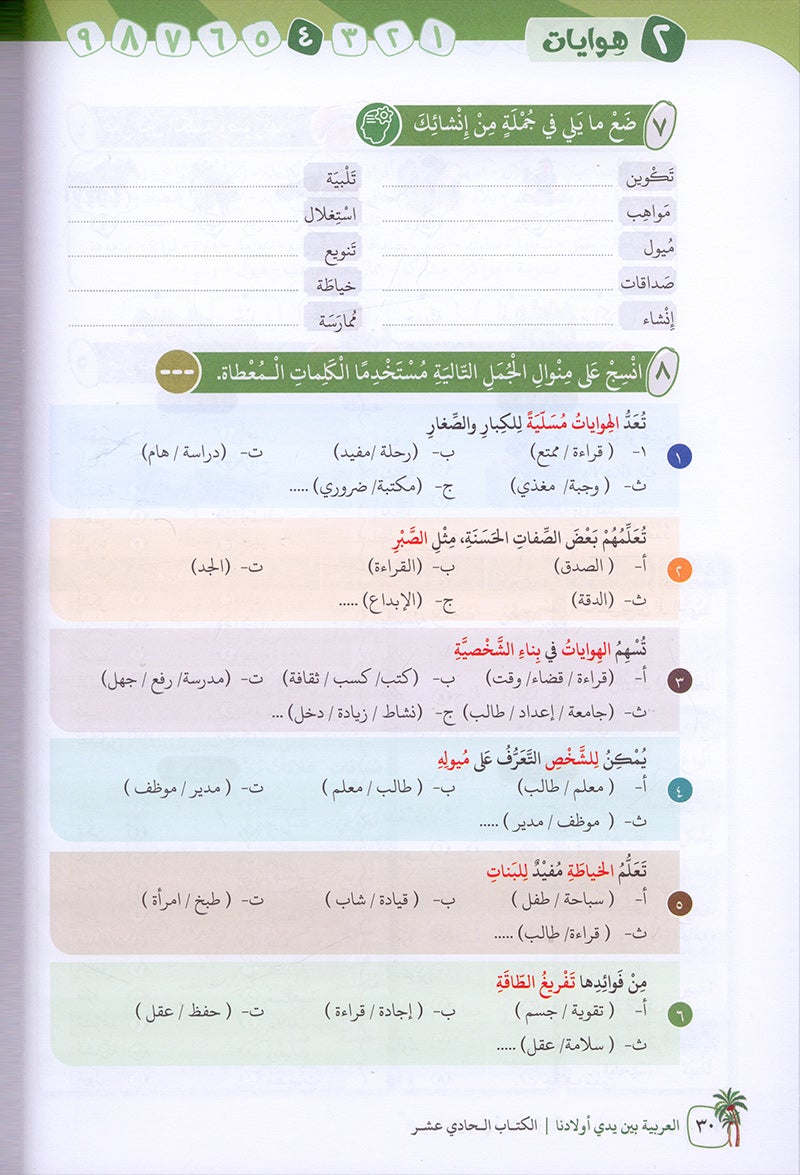 ٢ هِوايات ١ ٢ ٣ ٤ ٥ ٦ ٧ ٨ ٩
٧ ضَعْ ما يَلي في جُمْلَةٍ مِنْ إِنْشائِكَ
تَكْوين ........ تَلْبِيَة ........
مَواهِب ........ اسْتِغلال ........
مُيول ........ تَنويع ........
صَداقات ........ خياطَة ........
إِنْشاء ........ مُمارَسَة ........
٨ انْسِجْ عَلى مِنْوالِ الْجُمَلِ التّالِيَةِ مُسْتَخْدِمًا الْكَلِماتِ الْـمُعْطاة. ---
تُعَدُّ الهِواياتُ مُسَلِّيَةً لِلكِبارِ والصِّغارِ
١ ١- ( قراءة / ممتع) ب- (رحلة /مفيد) ت- (دراسة / هام)
ث- ( وجبة/ مغذي) ج- (مكتبة/ ضروري) .....
تُعَلِّمُهُمْ بَعْضَ الصِّفاتِ الحَسَنَةِ، مِثْلِ الصَّبْرِ
٢ أ- ( الصدق) ب- (القراءة) ت- (الجد)
ث- (الدقة) ج- (الإبداع) .....
تُسْهِمُ الهِواياتُ في بِناءِ الشَّخْصِيَّةِ
٣ أ- (قراءة / قضاء/ وقت) ب- (كتب/ كسب / ثقافة) ت- (مدرسة/ رفع / جهل)
ث- (جامعة / إعداد / طالب) ج- (نشاط / زيادة / دخل) ...
يُمْكِنُ لِلشَّخْصِ التَّعَرُّفُ عَلى مُيولِهِ
٤ أ- ( معلم / طالب) ب- ( طالب / معلم ) ت- ( مدير / موظف )
ث- ( موظف / مدير ) .....
تَعَلُّمُ الخياطَةِ مُفيْدٌ لِلبَناتِ
٥ أ- ( سباحة / طفل ) ب- ( قيادة / شاب ) ت- ( طبخ / امرأة )
ث- ( قراءة/ طالب) .....
مِنْ فَوائِدِها تَفْريغُ الطّاقَةِ
٦ أ- ( تقوية / جسم ) ب- ( إجادة / قراءة ) ت- ( حفظ / عقل )
ث- ( سلامة/ عقل) .....
٣٠ العربية بين يدي أولادنا | الكتـاب الـحادي عشـر